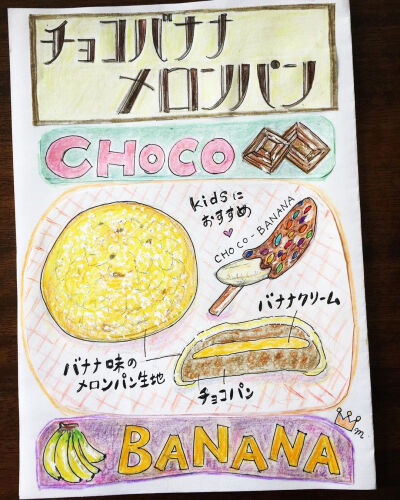 チョコバナナ
メロンパン
CHOCO
kidsに
おすすめ
CHOCO-BANANA
バナナクリーム
バナナ味の
メロンパン生地
チョコパン
m.
BANANA